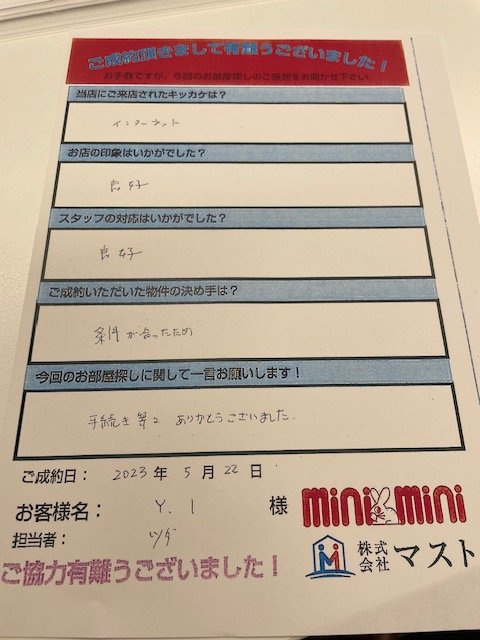 ご成約頂きまして有難うございました！
お手数ですが、今回のお部屋探しのご感想をお聞かせ下さい。
当店にご来店されたキッカケは？
インターネット
お店の印象はいかがでした？
良好
スタッフの対応はいかがでした？
良好
ご成約いただいた物件の決め手は？
条件が合ったため
今回のお部屋探しに関して一言お願いします！
手続き等々 ありがとうございました.
ご成約日： 2023 年 5 月 22 日
お客様名： Y. I 様
担当者： ツダ
ご協力有難うございました！
mini mini
株式会社 マスト